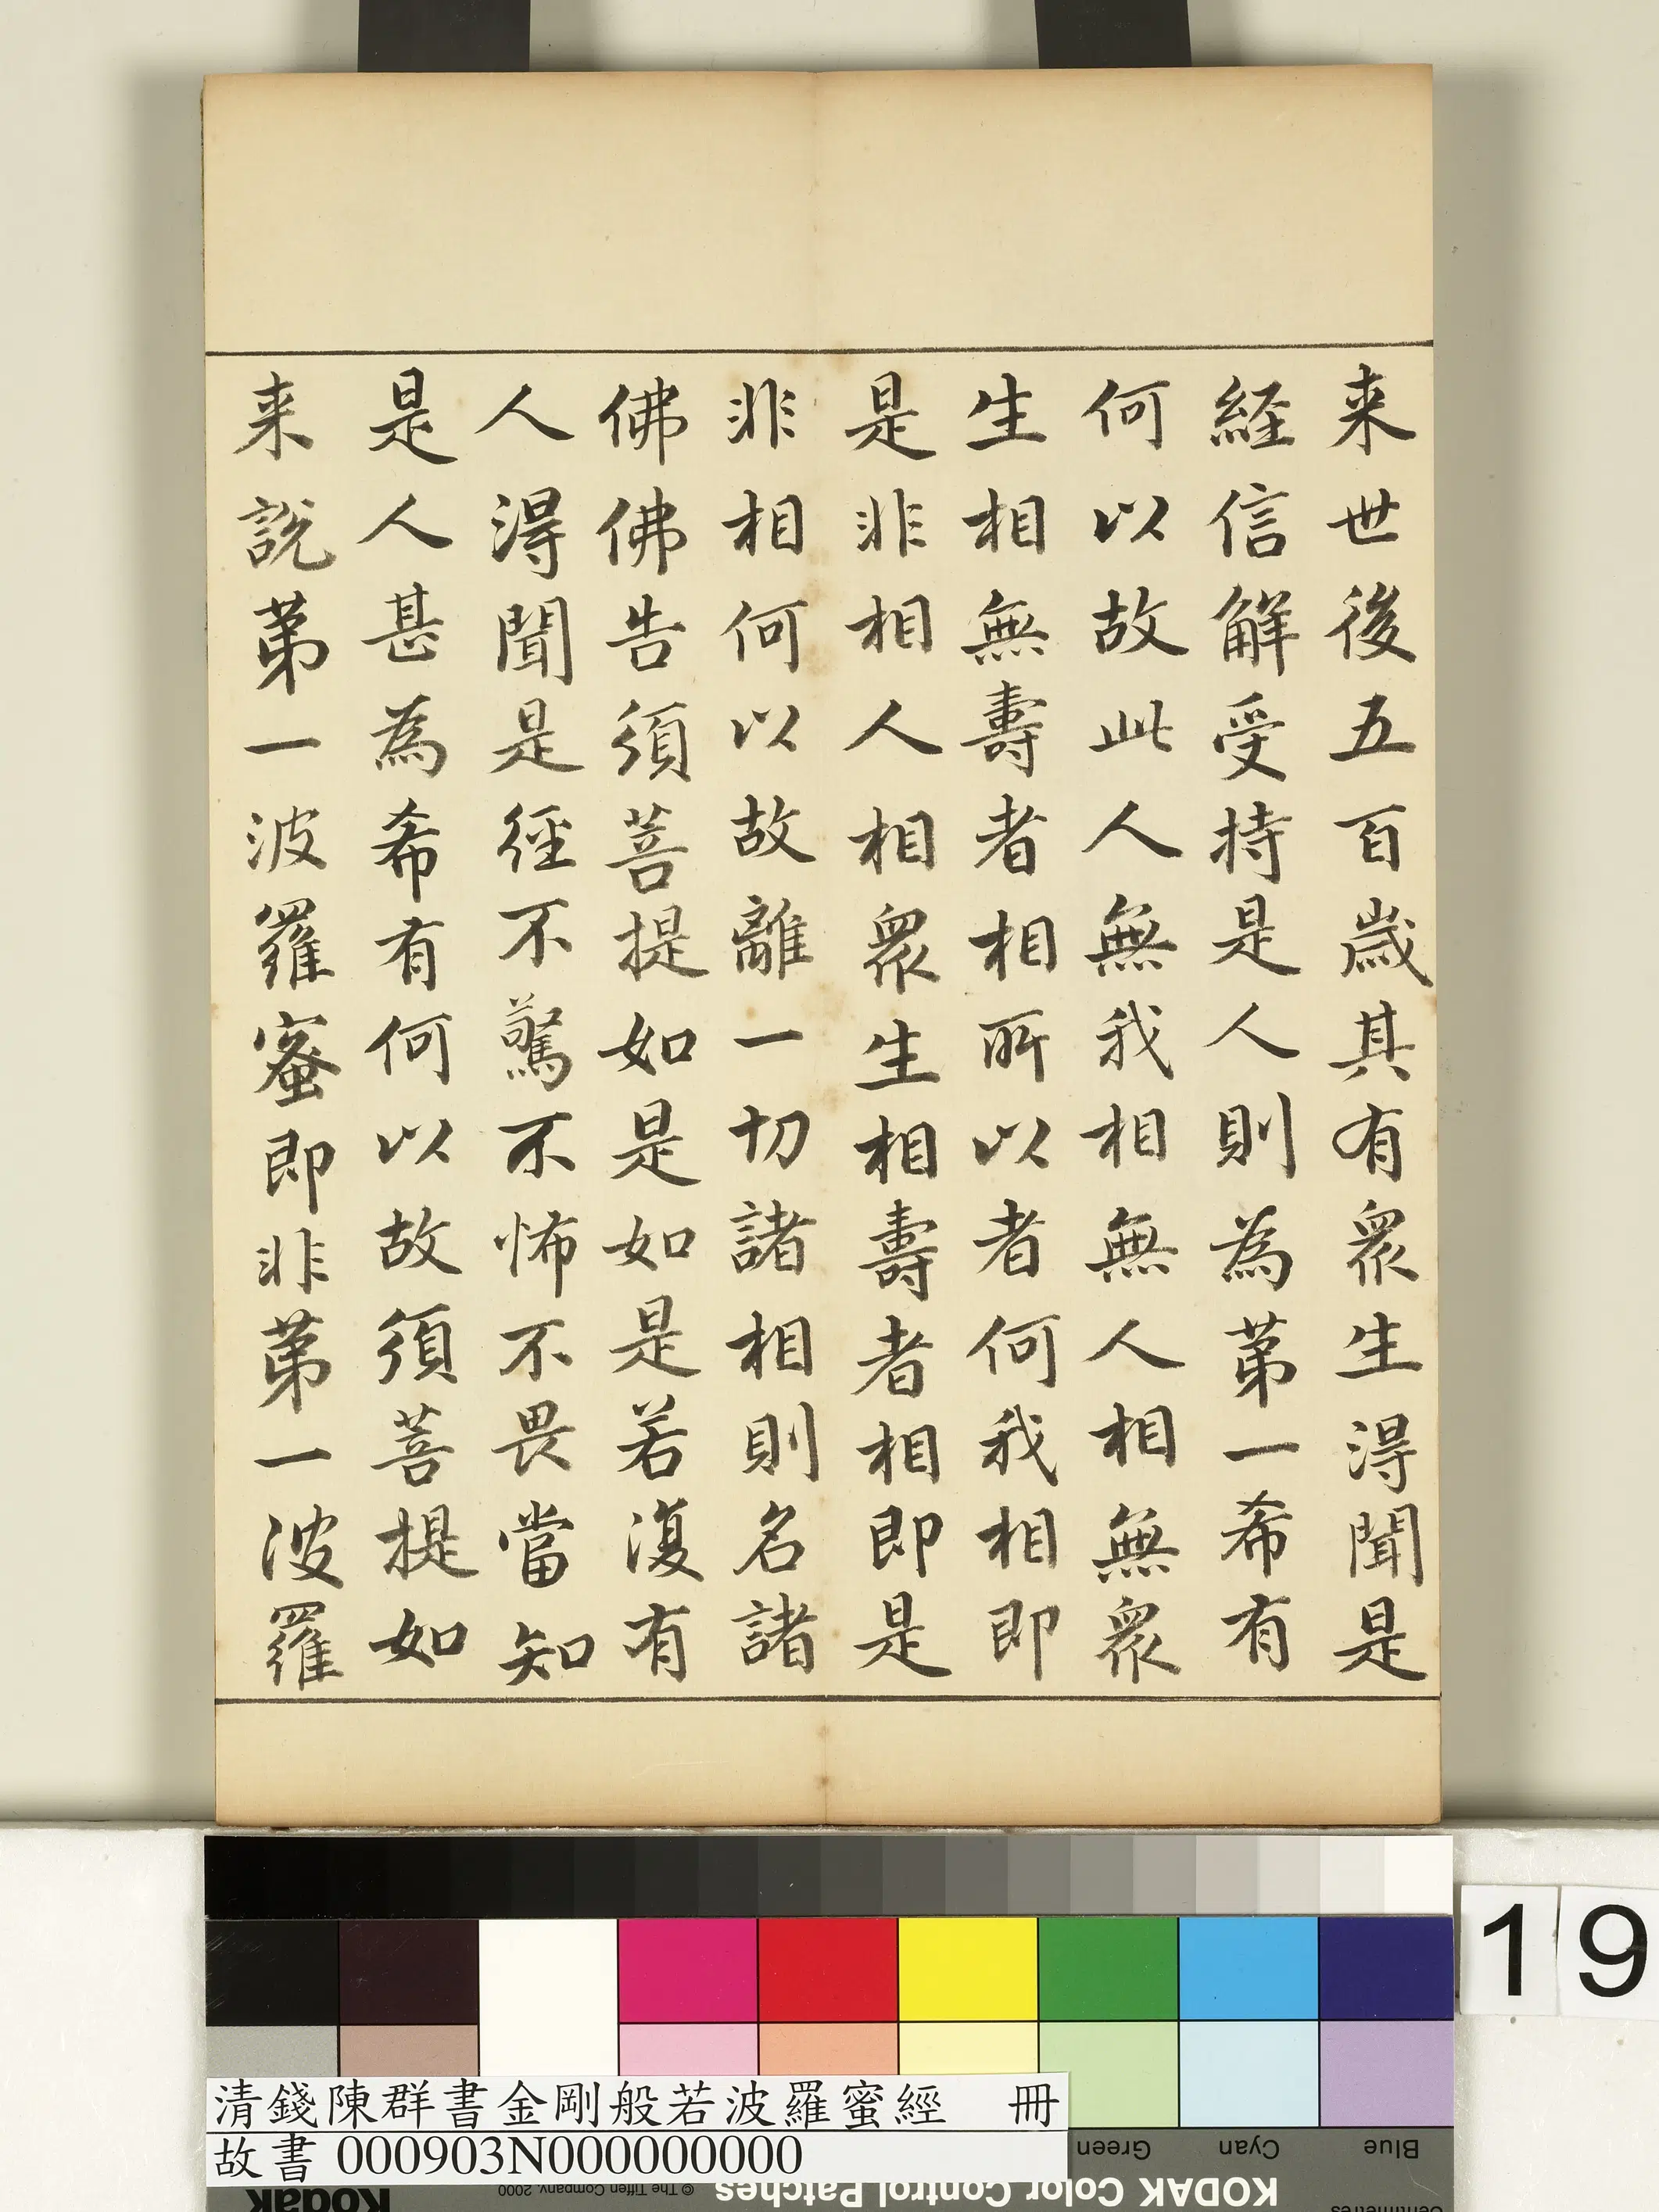 来世後五百歳其有衆生得聞是
経信解受持是人則為第一希有
何以故此人無我相無人相無衆
生相無壽者相所以者何我相即
是非相人相衆生相壽者相即是
非相何以故離一切諸相則名諸
佛佛告須菩提如是如是若復有
人得聞是經不驚不怖不畏當知
是人甚為希有何以故須菩提如
来說第一波羅蜜即非第一波羅
19
清錢陳群書金剛般若波羅蜜經 冊
故書 000903N000000000
Green Cyan Blue
KODAK Color Control Patches
© The Tiffen Company, 2000
Kodak
Centimetres